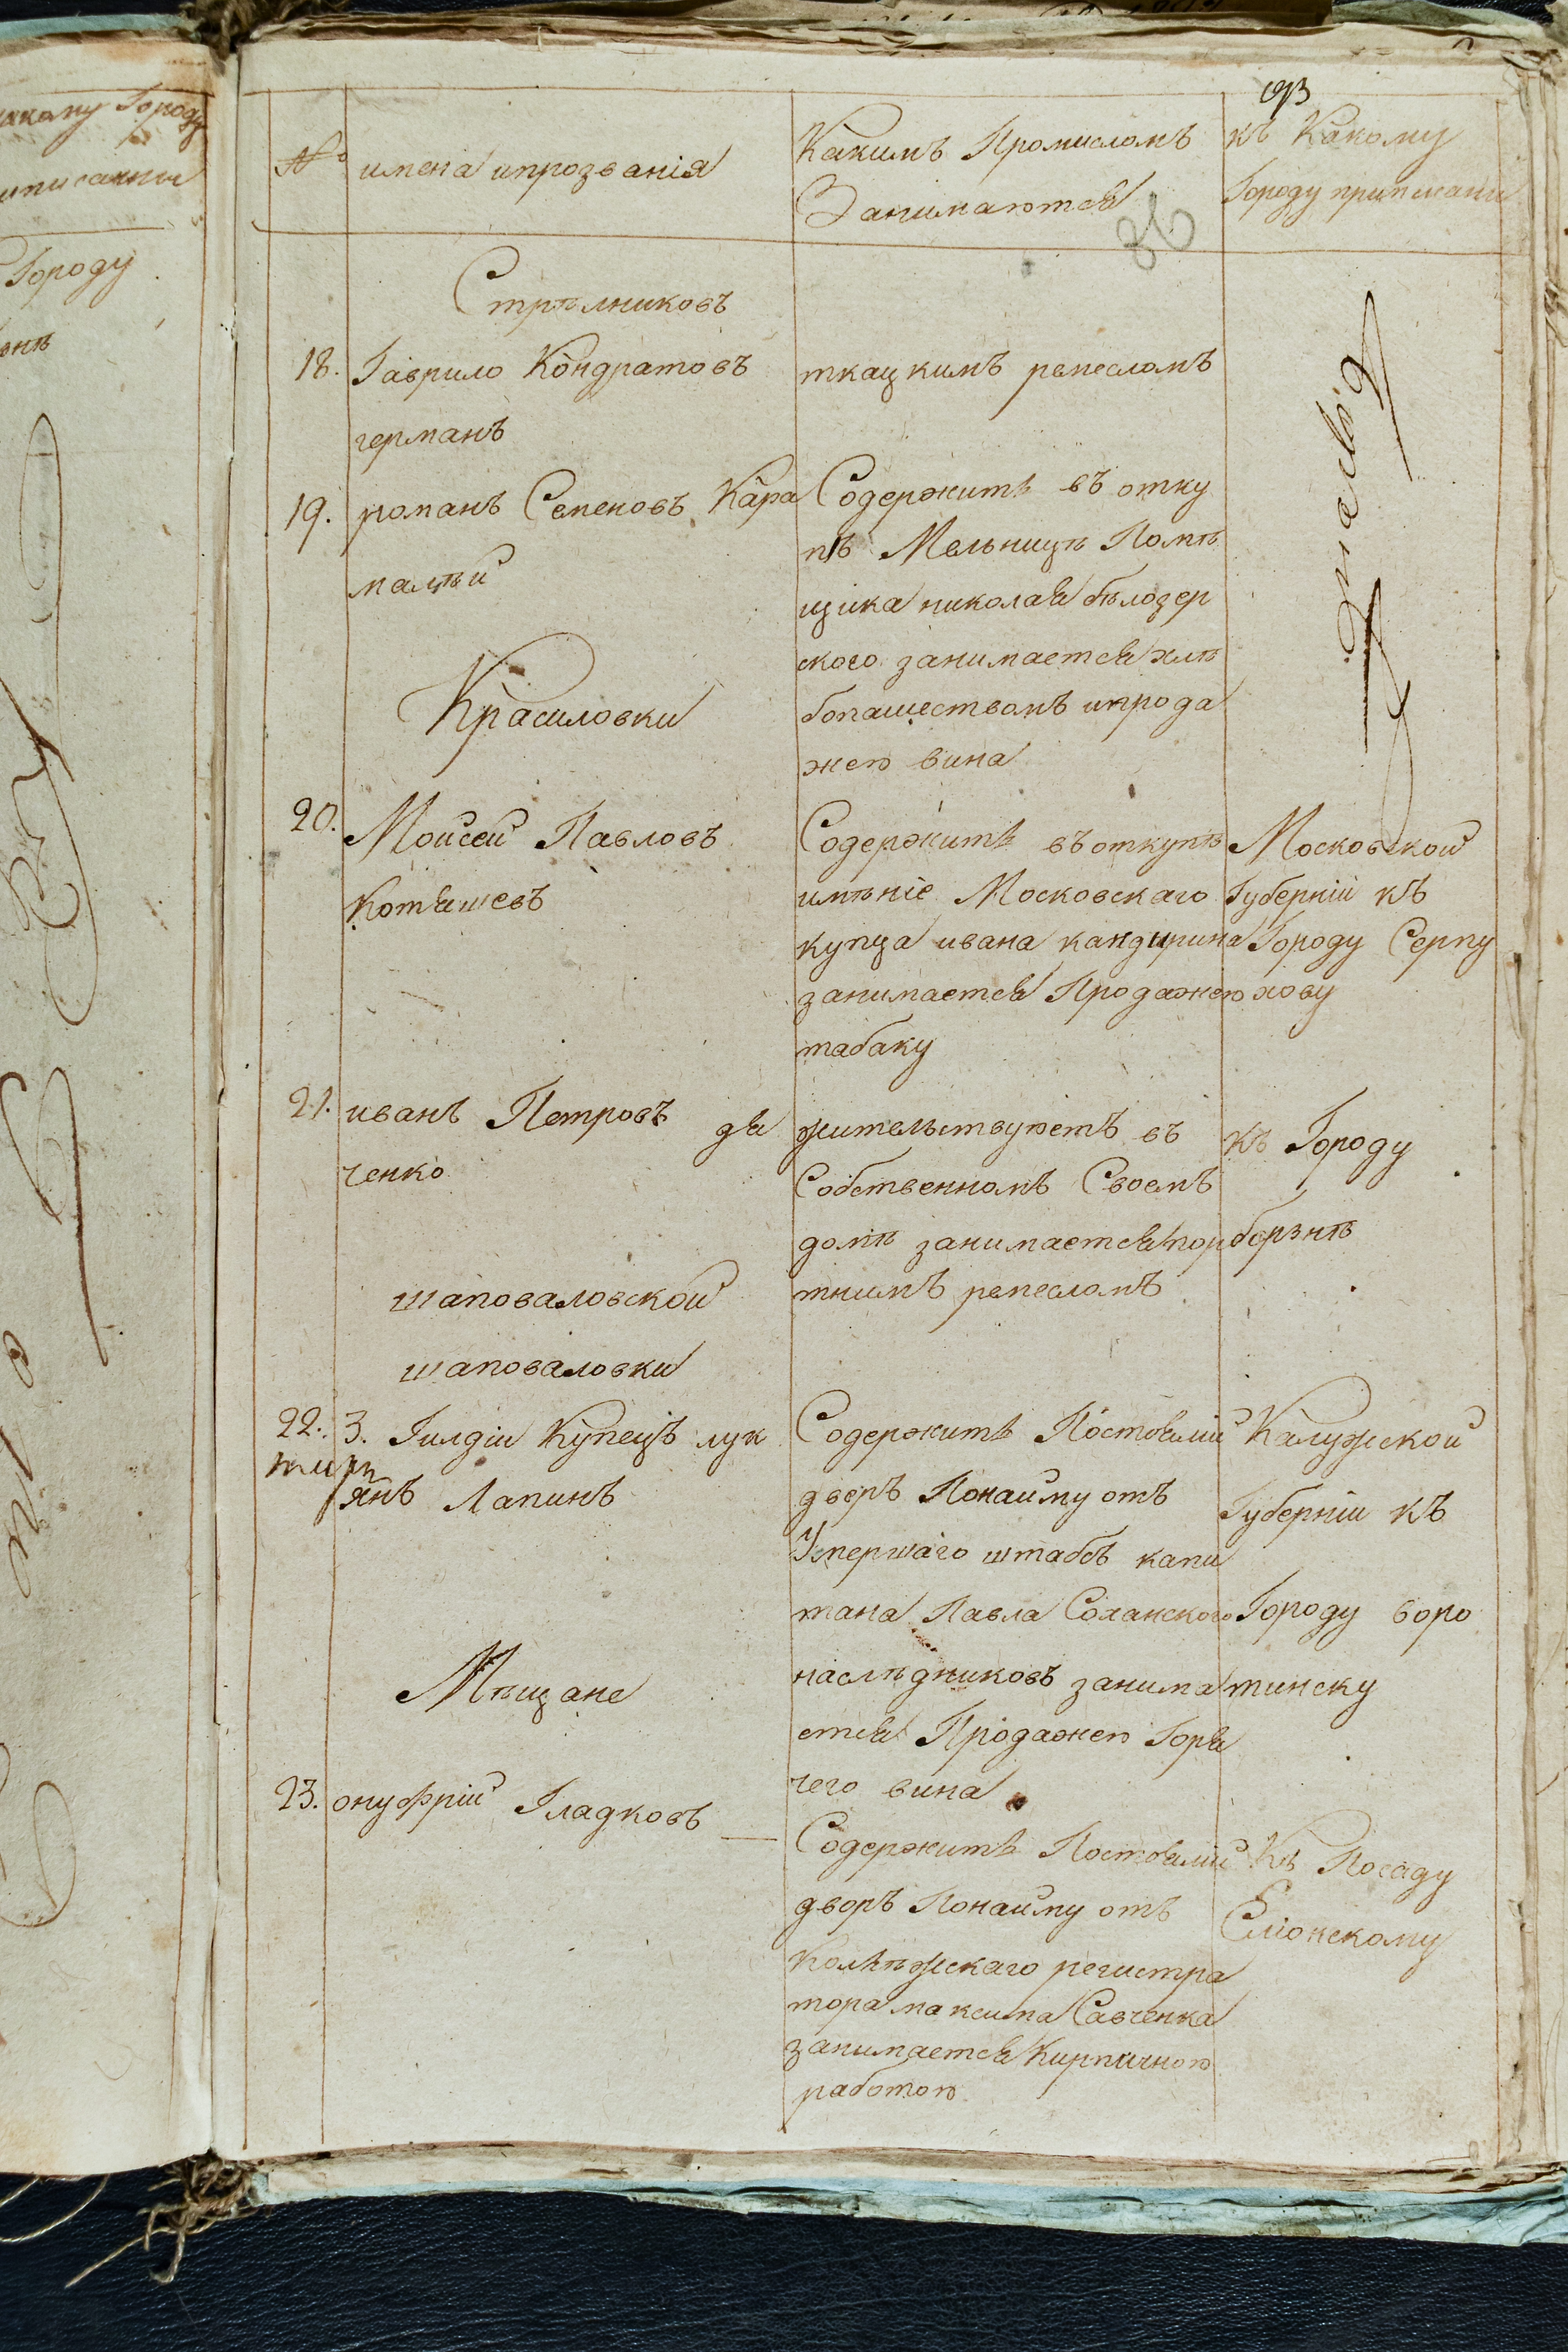 № имена ипрозванія
Какимъ Промисломъ
Занимаются
къ Какому
Городу приписани
36
Стрѣлниковъ
18. Гаврило Кондратовъ
германъ
ткацкимъ ремесломъ
19. романъ Семеновъ Кара
малѣй
Содержитъ въ отку
пѣ Мельницѣ Помѣ
щика николая бѣлозер
ского занимается хлѣ
бопашествомъ ипрода
жею вина
Красиловки
20. Моисей Павловъ
Котяшевъ
Содержитъ въ откупѣ
имѣніе Московскаго
купца ивана кандирина
занимается Продажею
табаку
Московской
Губерніи къ
Городу Серпу
хову
21. иванъ Петровъ дя
ченко
жительствуетъ въ
Собственномъ Своемъ
домѣ занимается пор
тнимъ ремесломъ
къ Городу
борзнѣ
шаповаловской
шаповаловки
22. 3. Гилдіи Купецъ лук
янъ Лапинъ
Содержитъ Постоялій
дворъ Понайму отъ
Умершаго штабсъ капи
тана Павла Соханского
наслѣдниковъ занима
ется Продажею Горя
чего вина
Калужской
Губерніи къ
Городу боро
тинску
Мѣщане
23. онуфрій Гладковъ
Содержитъ Постоялій
дворъ Понайму отъ
Колѣжскаго регистра
тора максима Савченка
занимается Кирпичною
работою
Къ Посаду
Еліонскому
Городу